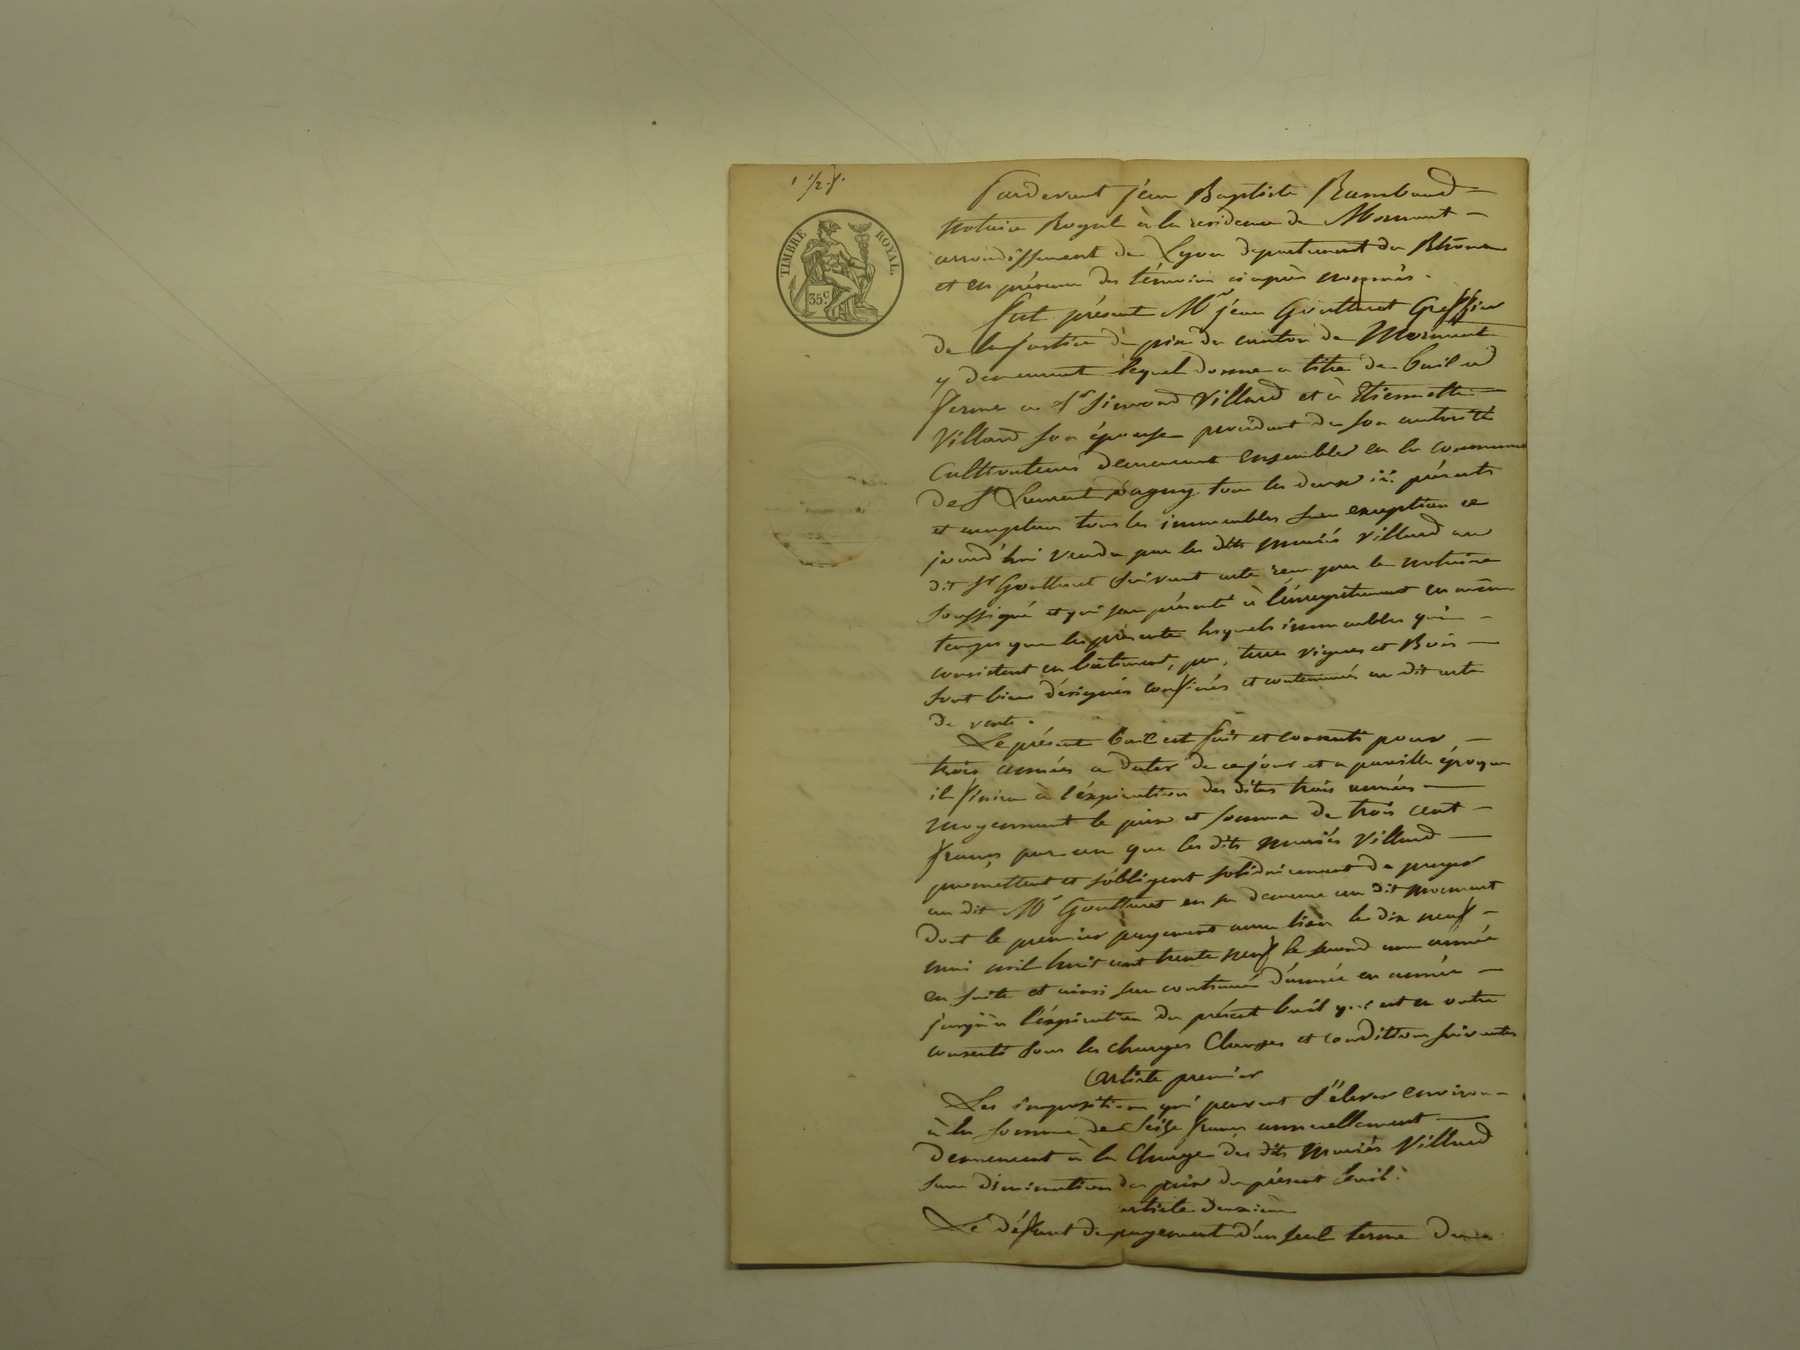 1 1/2 f.
TIMBRE ROYAL.
35 c
Pardevant jean Baptiste Rambaud
notaire Royal à la résidence de Mornant
arrondissement de Lyon département du Rhône
et en présence des témoins ci après nommés.
fut présent Mr jean Goutteret Greffier
de la justice de paix du canton de Mornant
y demeurant lequel donne a titre de bail a
ferme a Sr Simond Villard et à Etiennette
Villard son épouse procédant de son autorité
Cultivateurs demeurant ensembles en la commune
de St Laurent d'agny tous les deux ici présents
et acceptans tous les immeubles sans exception ce
jourd'hui vendu par les dits mariés Villard au
dit Sr Goutteret suivant acte reçu par le notaire
soussigné et qui sera présenté à l'énregistrement en même
temps que les présente lesquels immeubles qui
consistent en bâtiment, pré, terre vignes et Bois
sont bien désignés confinés et contenancés au dit acte
de vente.
Le présent bail est fait et consenti pour
trois années a dater de ce jour et a pareille époque
il finira à l'éxpiration des dites trois années
moyennant le prix et somme de trois cent
francs par an que les dits mariés Villard
promettent et s'obligent solidairement de payer
au dit Mr Goutteret en sa demeure au dit mornant
dont le premier payement aura lieu le dix neuf
mai mil huit cent trente neuf le second une année
en suite et ainsi sera continué d'année en année
jusqu'à l'éxpiration du présent bail qui est en outre
consenti sous les charges Clauses et conditions suivantes
article premier
Les impositions qui peuvent s'élever environ
à la somme de Seize francs annuellement
demeurent à la Charge des dits mariés Villard
sans diminution du prix du présent bail.
article deuxième
Le défaut de payement d'un seul terme dans